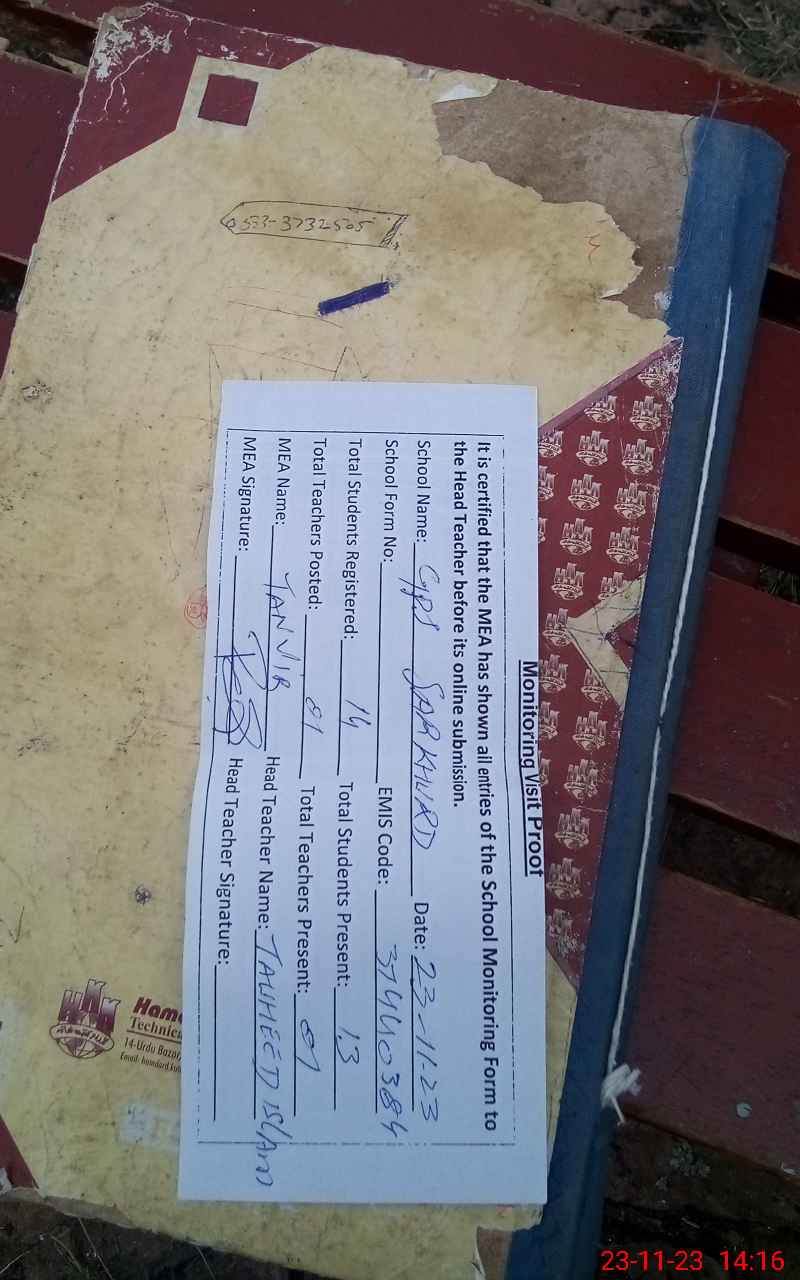 0533-3732505
Monitoring Visit Proof
It is certified that the MEA has shown all entries of the School Monitoring Form to
the Head Teacher before its online submission.
School Name: GPS SAR KHURD Date: 23-11-23
School Form No: EMIS Code: 37440384
Total Students Registered: 14 Total Students Present: 13
Total Teachers Posted: 01 Total Teachers Present: 01
MEA Name: TANVIR Head Teacher Name: TAUHEED ISLAM
MEA Signature: Head Teacher Signature:
Technic
14-Urdu Bazar,
23-11-23 14:16